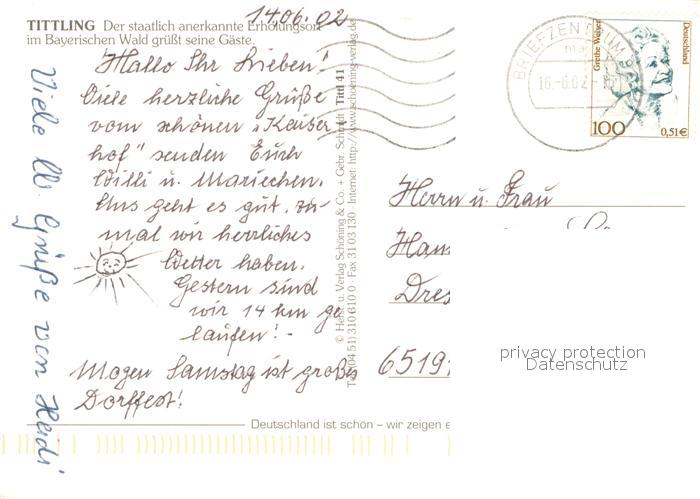 14.06.02
TITTLING Der staatlich anerkannte Erholungsort
im Bayerischen Wald grüßt seine Gäste.
Hallo Ihr Lieben!
Viele herzliche Grüße
vom schönen "Kaiser
hof" senden Euch
Willi u. Mariechen.
Uns geht es gut, zu-
mal wir herrliches
Wetter haben.
Gestern sind
wir 14 km ge
laufen! -
Mogen Samstag ist großes
Dorffest!
Viele lb. Grüße von Heidi
Titl 41
© Herst. u. Verlag Schöning & Co. + Gebr. Schmidt
Tel. (04 51) 310 310 0 · Fax 31 03 130 · Internet: http://www.schoening-verlag.de
Deutschland ist schön – wir zeigen e
BRIEFZENTRUM
16.-6.02
Grethe Weiser
Deutschland
100
0,51€
Herrn u. Frau
Ham
Dres
6519
privacy protection
Datenschutz